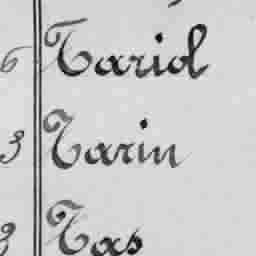 6 Tariol
3 Tarin
3 Tas